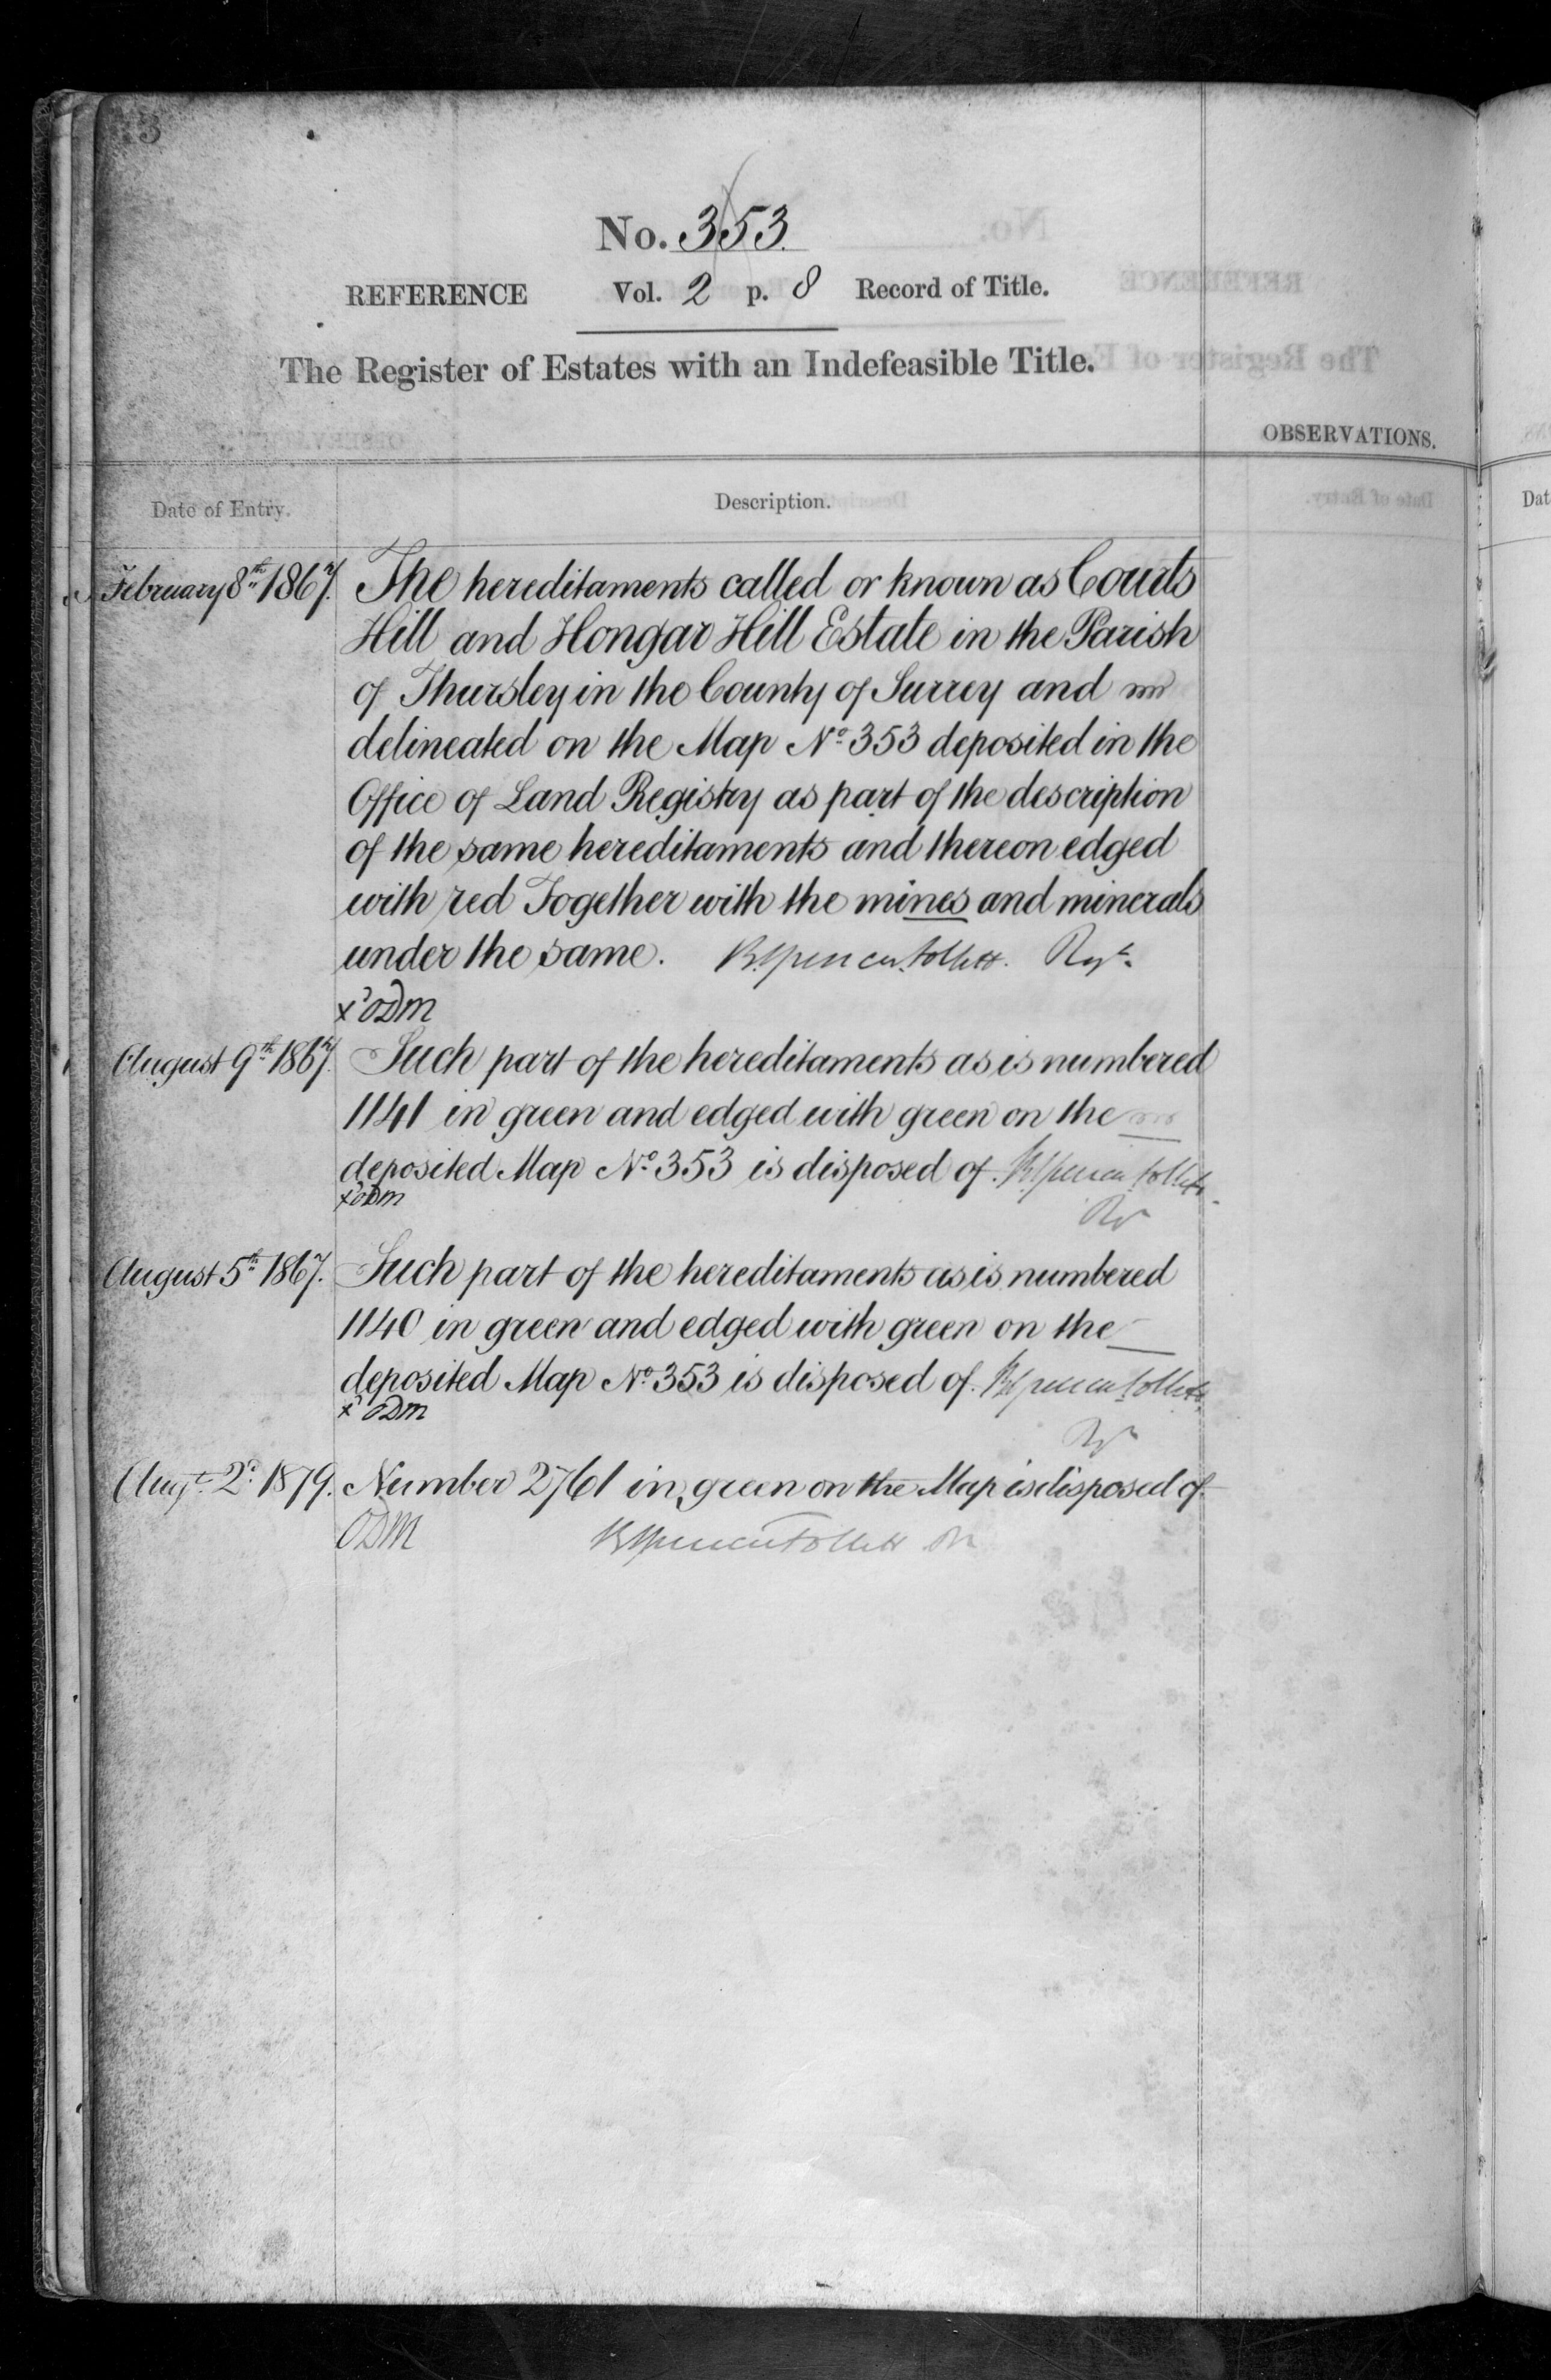 3
No. 353.
REFERENCE Vol. 2 p. 8 Record of Title.
The Register of Estates with an Indefeasible Title.
OBSERVATIONS.
Date of Entry. Description.
February 8th 1867. The hereditaments called or known as Courts
Hill and Hongar Hill Estate in the Parish
of Thursley in the County of Surrey and
delineated on the Map No 353 deposited in the
Office of Land Registry as part of the description
of the same hereditaments and thereon edged
with red Together with the mines and minerals
under the same. B. Spencer Follett. Regr.
x ODM
August 9th 1867. Such part of the hereditaments as is numbered
1141 in green and edged with green on the
deposited Map No 353 is disposed of. B. Spencer Follett.
x ODM
Rr
August 5th 1867. Such part of the hereditaments as is numbered
1140 in green and edged with green on the
deposited Map No 353 is disposed of. B. Spencer Follett.
x ODM
Rr
Augt. 2d. 1879. Number 2761 in green on the Map is disposed of
ODM B Spencer Follett
Dat